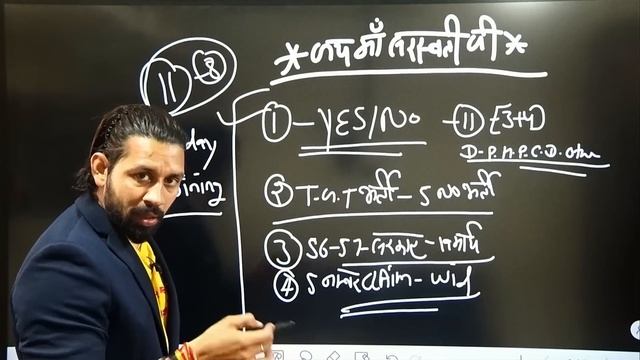 *जय माँ सरस्वती जी*
11 8
day
ining
① - YES/NO - 11 [3+4]
D-P.A.P.C.D. other
② T.G.T भर्ती - 5 no भर्ती
③ 56-57
④ 5 नम्बर Claim -